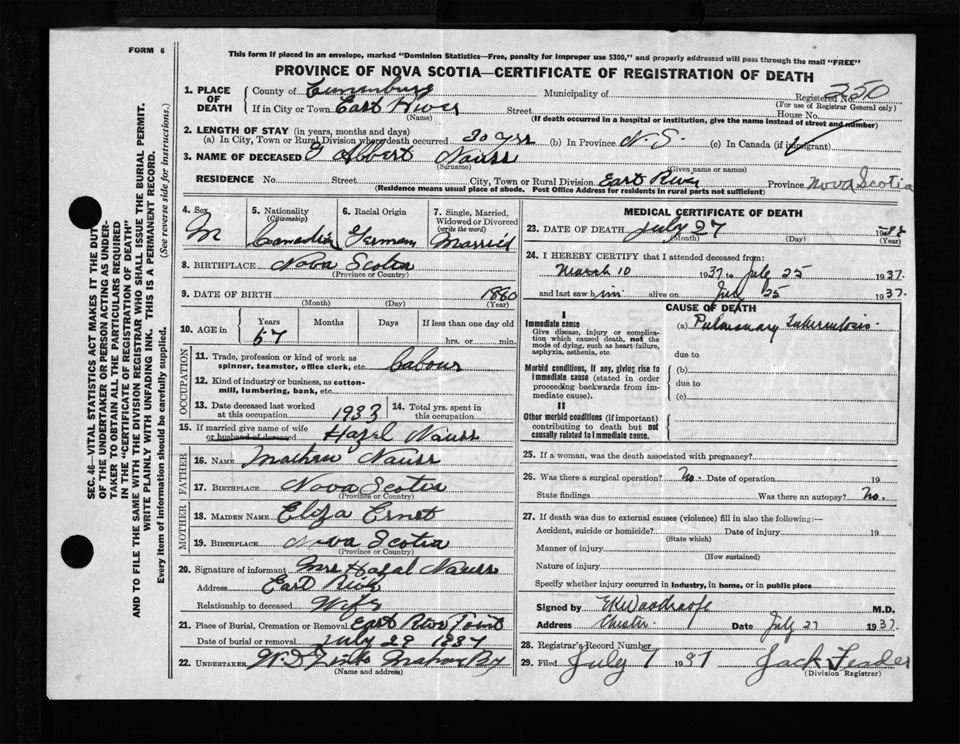 FORM 6
This form if placed in an envelope, marked "Dominion Statistics—Free, penalty for improper use $300," and properly addressed will pass through the mail "FREE"
PROVINCE OF NOVA SCOTIA—CERTIFICATE OF REGISTRATION OF DEATH
1. PLACE OF DEATH County of Lunenburg Municipality of Registered No. 250
(For use of Registrar General only)
If in City or Town East River Street House No.
(Name) (If death occurred in a hospital or institution, give the name instead of street and number)
2. LENGTH OF STAY (in years, months and days)
(a) In City, Town or Rural Division where death occurred 30 yrs (b) In Province N. S. (c) In Canada (if immigrant)
3. NAME OF DECEASED Albert Nauss
(Surname) (Given name or names)
RESIDENCE No. Street City, Town or Rural Division East River Province Nova Scotia
(Residence means usual place of abode. Post Office Address for residents in rural parts not sufficient)
4. Sex M
5. Nationality (Citizenship) Canadian
6. Racial Origin German
7. Single, Married, Widowed or Divorced (write the word) Married
8. BIRTHPLACE Nova Scotia
(Province or Country)
9. DATE OF BIRTH 1880
(Month) (Day) (Year)
10. AGE in Years Months Days If less than one day old
57 hrs. or min.
OCCUPATION
11. Trade, profession or kind of work as spinner, teamster, office clerk, etc. Labour
12. Kind of industry or business, as cotton-mill, lumbering, bank, etc.
13. Date deceased last worked at this occupation 1933
14. Total yrs. spent in this occupation
15. If married give name of wife or husband of deceased Hazel Nauss
FATHER
16. NAME Mathew Nauss
17. BIRTHPLACE Nova Scotia
(Province or Country)
MOTHER
18. MAIDEN NAME Eliza Ernst
19. BIRTHPLACE Nova Scotia
(Province or Country)
20. Signature of informant Mrs Hazal Nauss
Address East River
Relationship to deceased Wife
21. Place of Burial, Cremation or Removal East River Point
Date of burial or removal July 29 1937
22. UNDERTAKER
(Name and address)
MEDICAL CERTIFICATE OF DEATH
23. DATE OF DEATH July 27
(Month) (Day) (Year)
24. I HEREBY CERTIFY that I attended deceased from:
March 10 1937 to July 25 1937.
and last saw him alive on July 25 1937.
CAUSE OF DEATH
I
Immediate cause
Give disease, injury or complication which caused death, not the mode of dying, such as heart failure, asphyxia, asthenia, etc.
(a) Pulmonary Tuberculosis.
due to
Morbid conditions, if any, giving rise to immediate cause (stated in order proceeding backwards from immediate cause).
(b)
due to
(c)
II
Other morbid conditions (if important) contributing to death but not causally related to immediate cause.
25. If a woman, was the death associated with pregnancy?
26. Was there a surgical operation? No. Date of operation 19
State findings Was there an autopsy? No.
27. If death was due to external causes (violence) fill in also the following:—
Accident, suicide or homicide? Date of injury 19
(State which)
Manner of injury
(How sustained)
Nature of injury
Specify whether injury occurred in industry, in home, or in public place
Signed by M.D.
Address Chester Date July 27 1937.
28. Registrar's Record Number
29. Filed July 1937 Jack
(Division Registrar)
SEC. 46—VITAL STATISTICS ACT MAKES IT THE DUTY
OF THE UNDERTAKER OR PERSON ACTING AS UNDER-
TAKER TO OBTAIN ALL THE PARTICULARS REQUIRED
IN THE "CERTIFICATE OF REGISTRATION OF DEATH"
AND TO FILE THE SAME WITH THE DIVISION REGISTRAR WHO SHALL ISSUE THE BURIAL PERMIT.
WRITE PLAINLY WITH UNFADING INK. THIS IS A PERMANENT RECORD.
Every item of information should be carefully supplied. (See reverse side for instructions.)